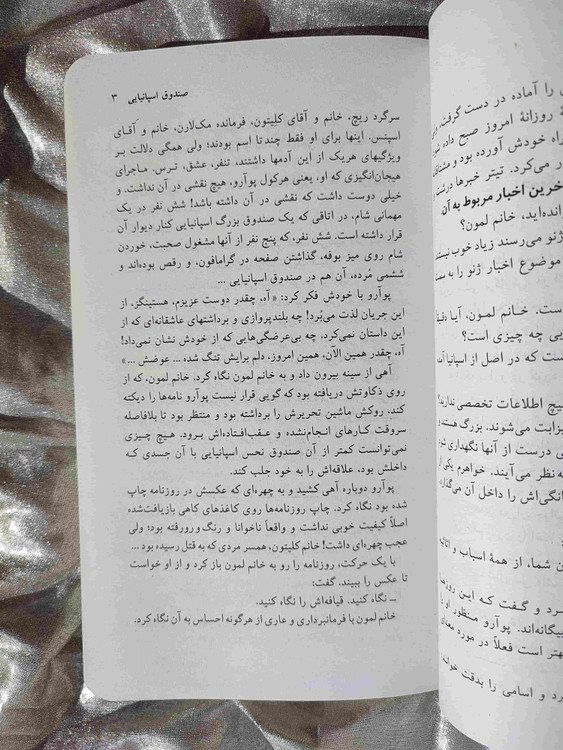 صندوق اسپانیایی ۳
سرگرد ریچ، خانم و آقای کلیتون، فرمانده مک‌لارن، خانم و آقای
اسپنس. اینها برای او فقط چند تا اسم بودند؛ ولی همگی دلالت بر
ویژگیهای هریک از این آدمها داشتند، تنفر، عشق، ترس. ماجرای
هیجان‌انگیزی که او، یعنی هرکول پوآرو، هیچ نقشی در آن نداشت. و
خیلی دوست داشت که نقشی در آن داشته باشد! شش نفر در یک
مهمانی شام، در اتاقی که یک صندوق بزرگ اسپانیایی کنار دیوار آن
قرار داشته است. شش نفر، که پنج نفر از آنها مشغول صحبت، خوردن
شام روی میز بوفه، گذاشتن صفحه در گرامافون، و رقص بوده‌اند و
ششمی مُرده، آن هم در صندوق اسپانیایی ...
پوآرو با خودش فکر کرد: «آه، چقدر دوست عزیزم، هستینگز، از
این جریان لذت می‌بُرد! چه بلندپروازی و برداشتهای عاشقانه‌ای که از
این داستان نمی‌کرد. چه بی‌عرضگی‌هایی که از خودش نشان نمی‌داد!
آه، چقدر همین الآن، همین امروز، دلم برایش تنگ شده ... عوضش ... »
آهی از سینه بیرون داد و به خانم لمون نگاه کرد. خانم لمون، که از
روی ذکاوتش دریافته بود که گویی قرار نیست پوآرو نامه‌ها را دیکته
کند، روکش ماشین تحریرش را برداشته بود و منتظر بود تا بلافاصله
سروقت کارهای انجام‌نشده و عقب‌افتاده‌اش برود. هیچ چیزی
نمی‌توانست کمتر از آن صندوق نحس اسپانیایی با آن جسدی که
داخلش بود، علاقه‌اش را به خود جلب کند.
پوآرو دوباره آهی کشید و به چهره‌ای که عکسش در روزنامه چاپ
شده بود نگاه کرد. چاپ روزنامه‌ها روی کاغذهای کاهی بازیافت‌شده
اصلاً کیفیت خوبی نداشت و واقعاً ناخوانا و رنگ‌ورورفته بود؛ ولی
عجب چهره‌ای داشت! خانم کلیتون، همسر مردی که به قتل رسیده بود ...
با یک حرکت، روزنامه را رو به خانم لمون باز کرد و از او خواست
تا عکس را ببیند. گفت:
ــ نگاه کنید. قیافه‌اش را نگاه کنید.
خانم لمون با فرمانبرداری و عاری از هرگونه احساس به آن نگاه کرد.
را آماده در دست گرفت،
روزانهٔ امروز صبح داده
راه خودش آورده بود و
می‌کرد. تیتر خبرها درشت
خرین اخبار مربوط به آن
انده‌اید، خانم لمون؟
ژنو می‌رسند زیاد خوب
موضوع اخبار ژنو را به
ست. خانم لمون، آیا
یی چه چیزی است؟
ست که در اصل از اسپانیا
یچ اطلاعات تخصصی ندارید؟
یزابت می‌شوند. بزرگ هستند و
ی درست از آنها نگهداری شود
به نظر می‌آیند. خواهرم یکی از
انگی‌اش را داخل آن می‌گذارد.
ن شما، از همهٔ اسباب و
رد و گفت که این
بیگانه‌اند. پوآرو منظور او را
هتر است فعلاً در مورد معنای
رد و اسامی را بدقت